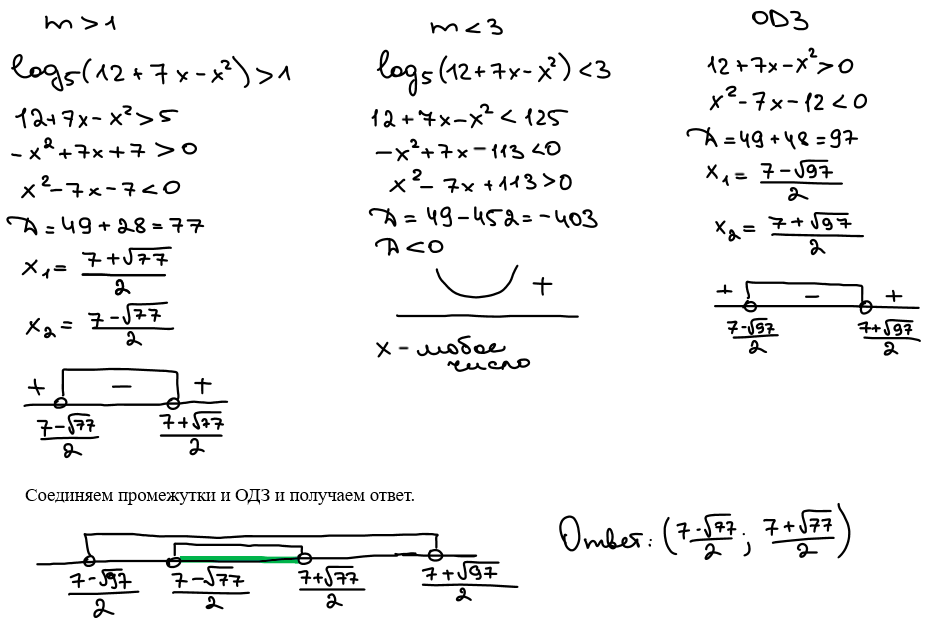 m > 1
log₅(12 + 7x - x²) > 1
12 + 7x - x² > 5
-x² + 7x + 7 > 0
x² - 7x - 7 < 0
D = 49 + 28 = 77
x₁ = (7 + √77)/2
x₂ = (7 - √77)/2
+ - +
(7 - √77)/2 (7 + √77)/2
m < 3
log₅(12 + 7x - x²) < 3
12 + 7x - x² < 125
-x² + 7x - 113 < 0
x² - 7x + 113 > 0
D = 49 - 452 = -403
D < 0
+
x - любое
число
ОДЗ
12 + 7x - x² > 0
x² - 7x - 12 < 0
D = 49 + 48 = 97
x₁ = (7 - √97)/2
x₂ = (7 + √97)/2
+ - +
(7 - √97)/2 (7 + √97)/2
Соединяем промежутки и ОДЗ и получаем ответ.
(7 - √97)/2 (7 - √77)/2 (7 + √77)/2 (7 + √97)/2
Ответ: ((7 - √77)/2 ; (7 + √77)/2)